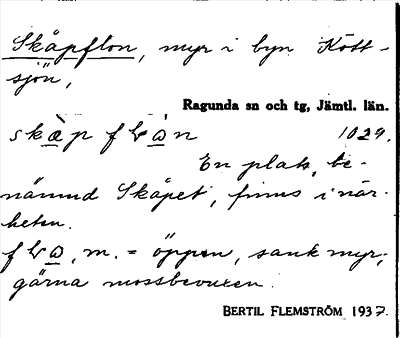 Skåpflon, myr i byn Kött-
sjön,
Ragunda sn och tg, Jämtl. län.
skæ̀p flɷ̀n 1029.
En plats, be-
nämnd Skåpet, finns i när-
heten.
flɷ, m. = öppen, sank myr,
gärna mossbevuxen.
BERTIL FLEMSTRÖM 1937.